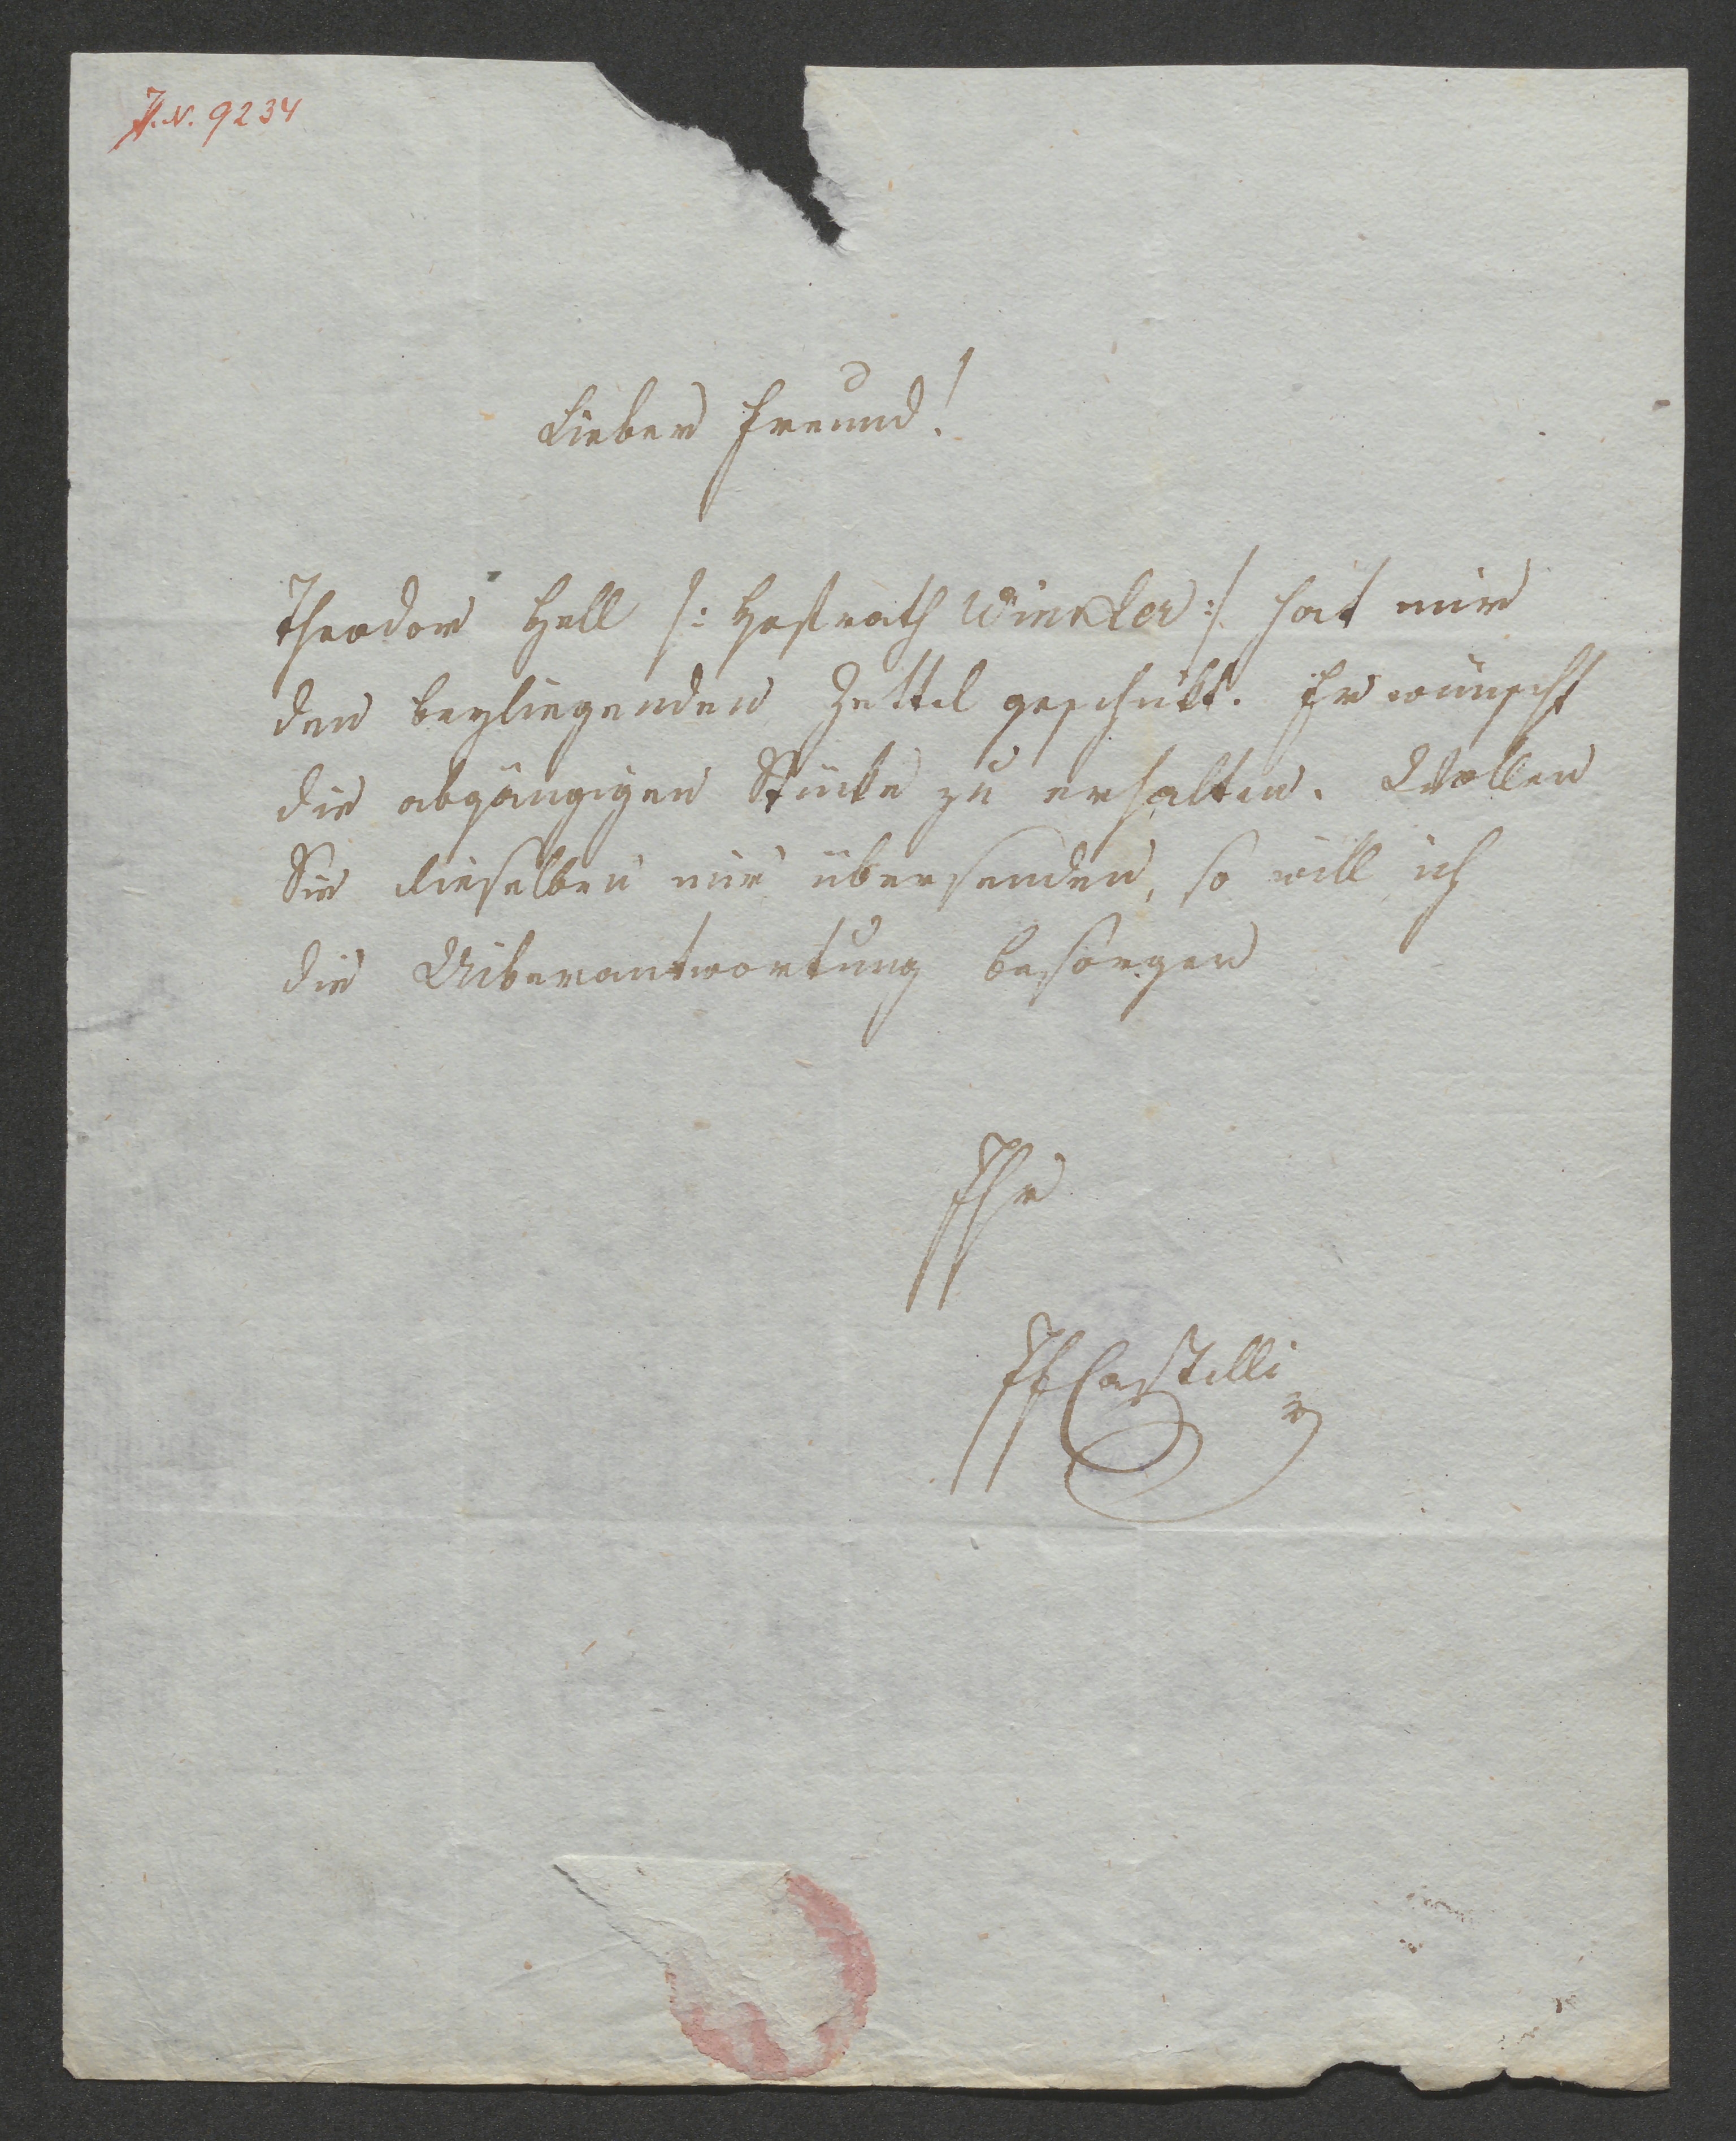 J. N. 9234
Lieber Freund!
Theodor Hell /: Hofrath Winkler :/ hat mir
den beyliegenden Zettel geschickt. Er wünscht
die abgängigen Stücke zu erhalten. Wollen
Sie dieselben mir übersenden, so will ich
die Uiberantwortung besorgen
Ihr
IfCastelli